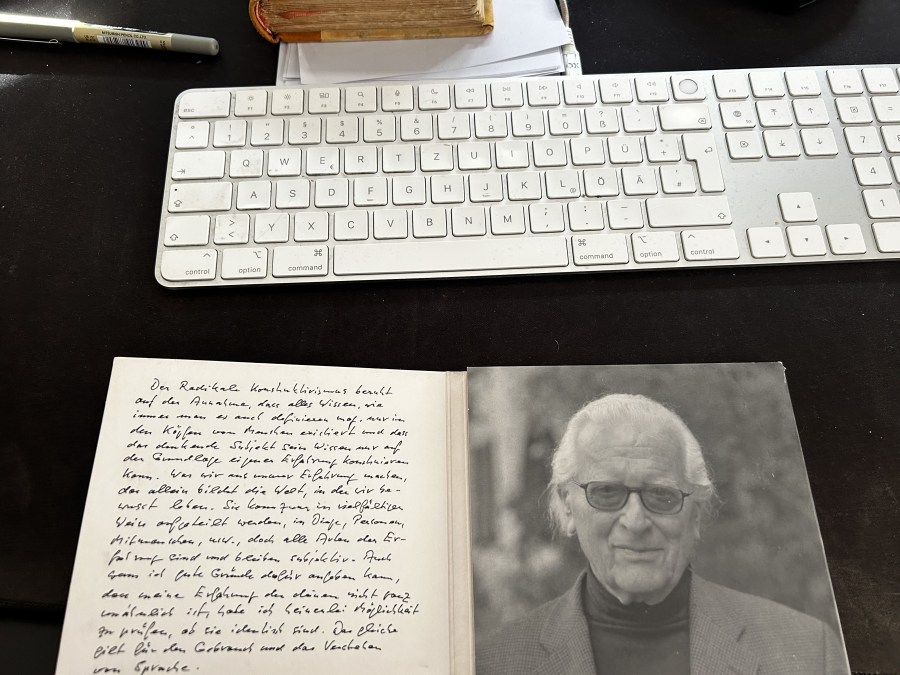 MITSUBISHI PENCIL CO.,LTD
esc F1 F2 F3 F4 F5 F6 F7 F8 F9 F10 F11 F12 F13 F14 F15 F16 F17
° ^ ! 1 " 2 § 3 $ 4 % 5 & 6 / 7 ( 8 ) 9 = 0 ? ß ` ´ fn =
Q W E € R T Z U I O P Ü * + 7
A S D F G H J K L @ Ö Ä ' # 4
> < Y X C V B N M ; , : . _ - 1
control option command command option control
Der Radikale Konstruktivismus beruht
auf der Annahme, dass alles Wissen, wie
immer man es auch definieren mag, nur in
den Köpfen von Menschen existiert und dass
das denkende Subjekt sein Wissen nur auf
der Grundlage eigener Erfahrung konstruieren
kann. Was wir aus unserer Erfahrung machen,
das allein bildet die Welt, in der wir be-
wusst leben. Sie kann zwar in vielfältiger
Weise aufgeteilt werden, in Dinge, Personen,
Mitmenschen, usw., doch alle Arten der Er-
fahrung sind und bleiben subjektiv. Auch
wenn ich gute Gründe dafür angeben kann,
dass meine Erfahrung der deinen nicht ganz
unähnlich ist, habe ich keinerlei Möglichkeit
zu prüfen, ob sie identisch sind. Das gleiche
gilt für den Gebrauch und das Verstehen
von Sprache.